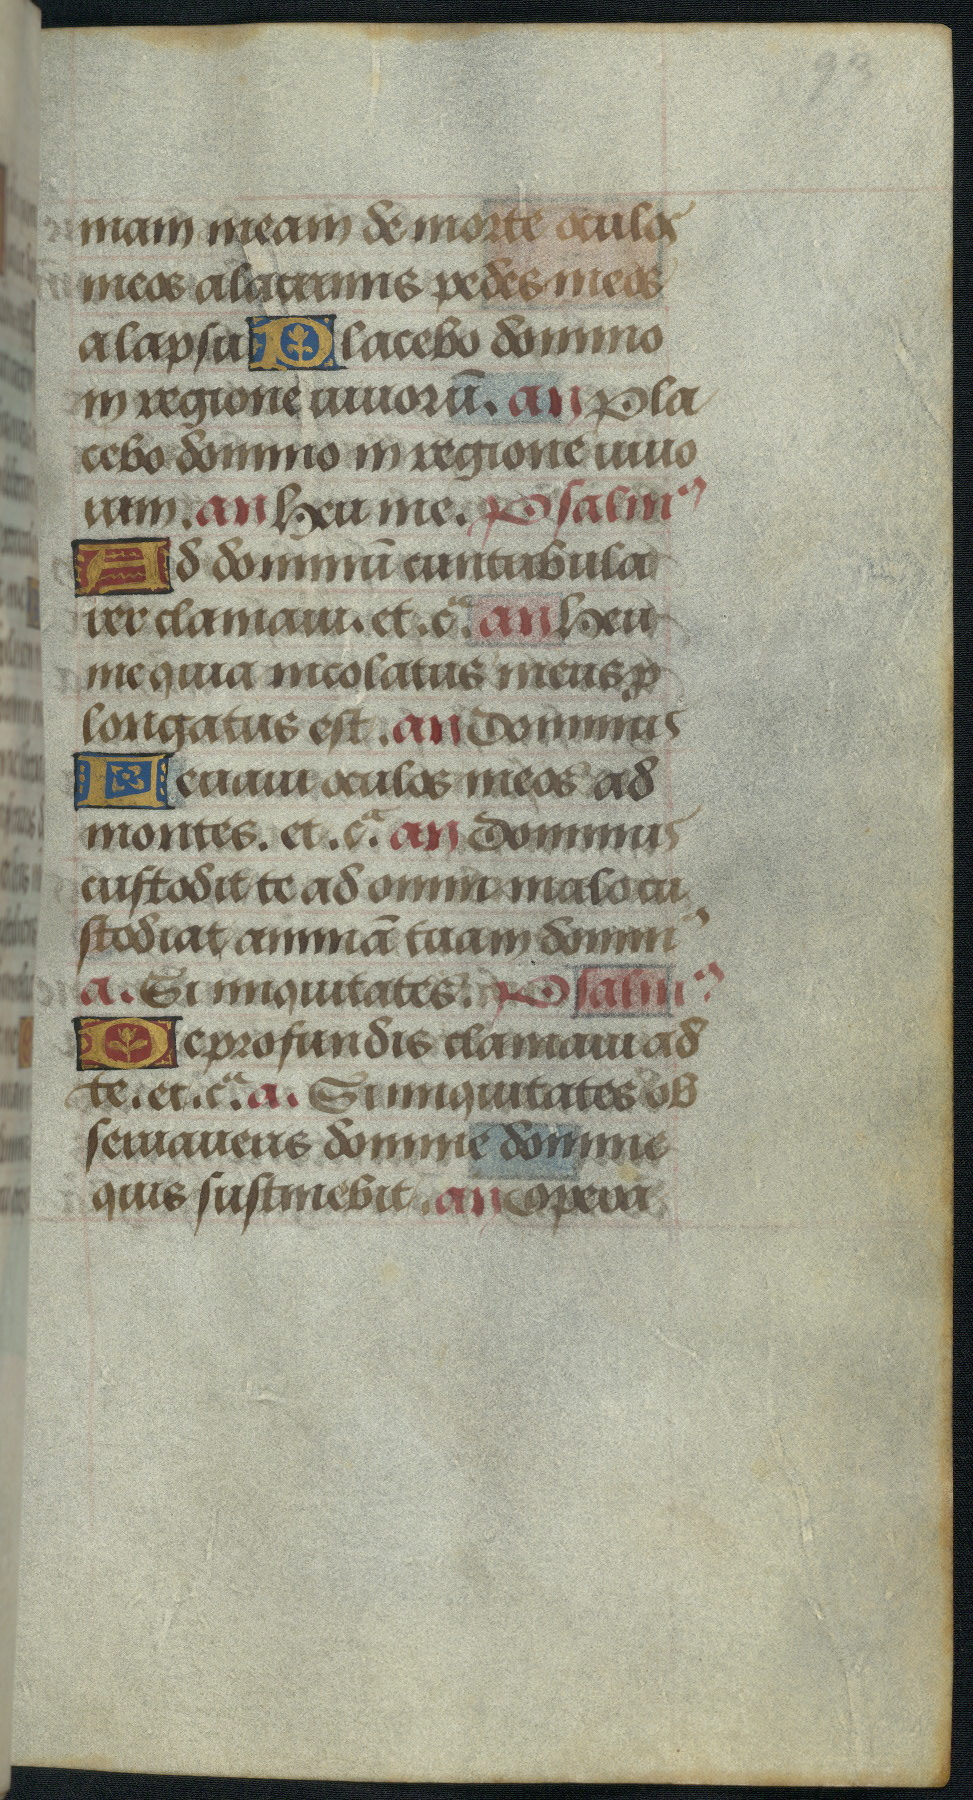 93
mam meam de morte oculos
meos alacrimis pedes meos
a lapsu Placebo domino
in regione uiuorū. an Pla
cebo domino in regione uiuo
rum. an Heu me. Psalmꝰ
Ad dominū cum tribula
rer clamaui. et. cᷓ. an Heu
me quia incolatus meus ꝓ
longatus est. an Dominus
Leuaui oculos meos ad
montes. et. cᷓ. an Dominus
custodit te ad omni malo cu
stodiat animā tuam dominꝰ
a. Si iniquitates. Psalmꝰ
De profundis clamaui ad
te. et. cᷓ. a. Si iniquitates ob
seruaueris domine domine
quis sustinebit. an Opera